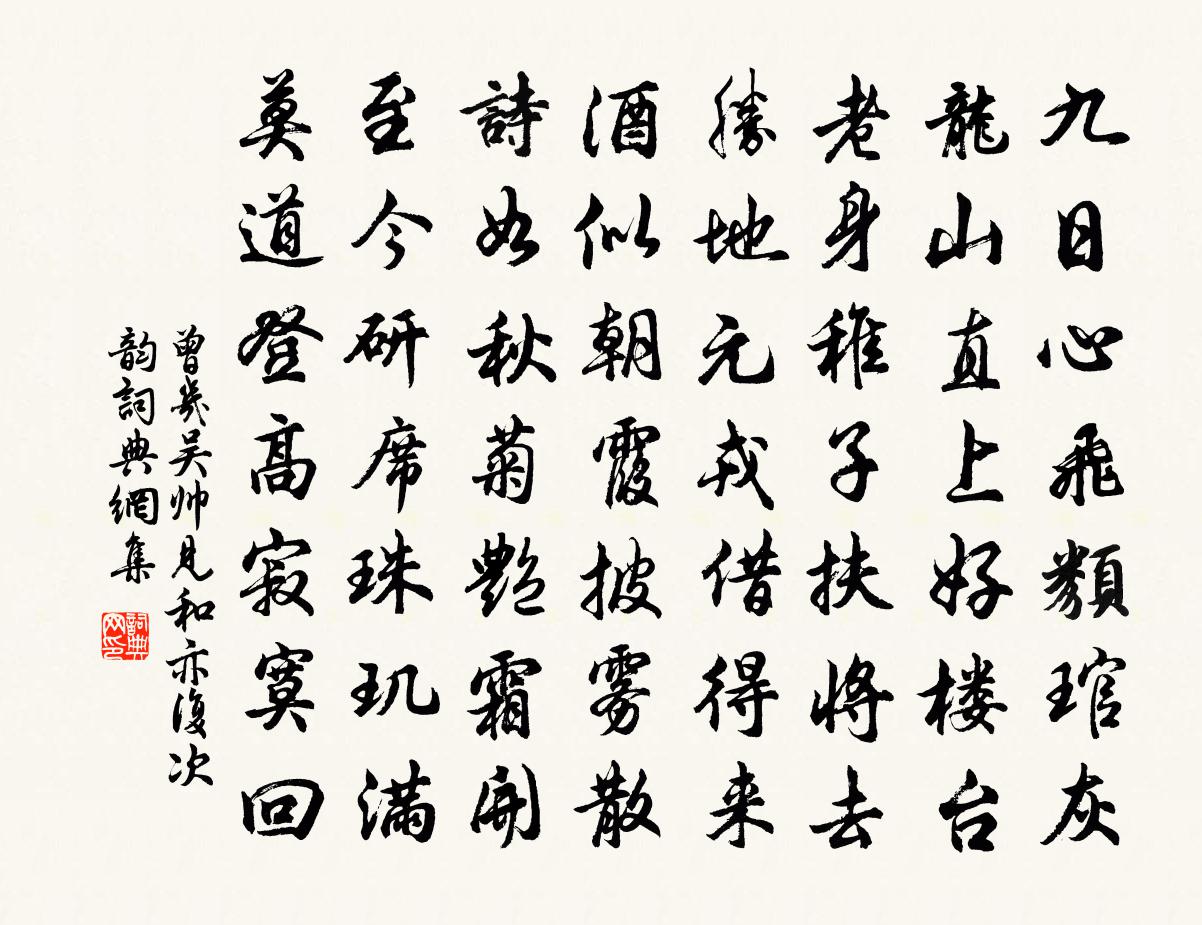 九日心飛類琯灰
龍山直上好楼台
老身稚子扶将去
勝地元戎借得来
酒似朝霞披雾散
詩如秋菊艷霜開
至今研席珠玑滿
莫道登高寂寞回
曾幾吴帅見和亦復次
韵詞典網集
詞典网印